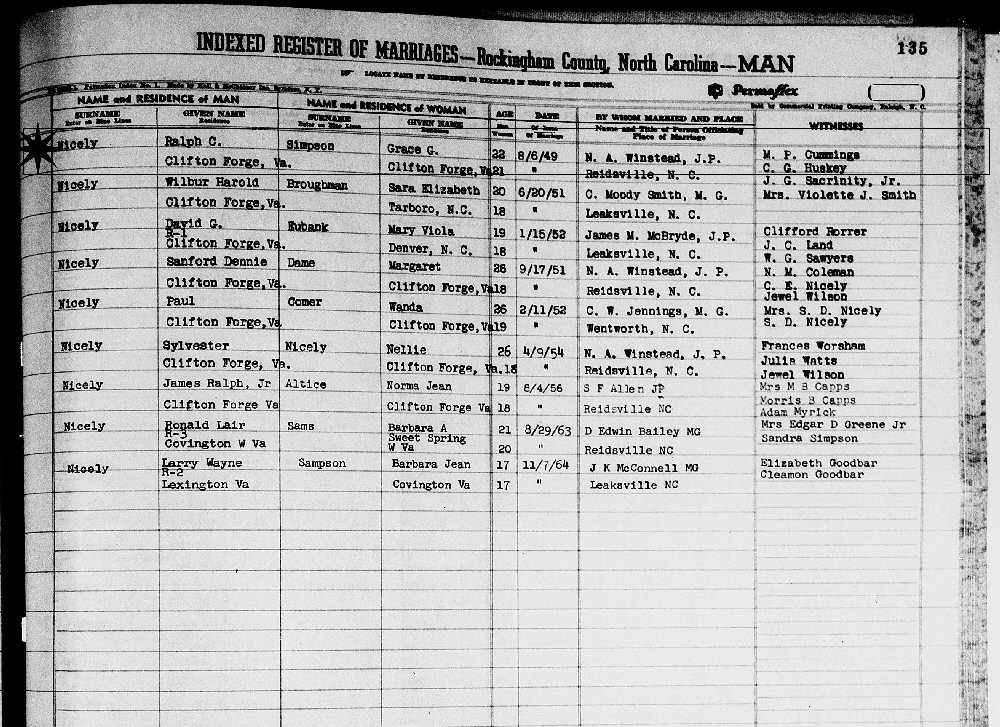 INDEXED REGISTER OF MARRIAGES—Rockingham County, North Carolina—MAN
135
Permaflex
NAME and RESIDENCE of MAN NAME and RESIDENCE of WOMAN AGE DATE BY WHOM MARRIED AND PLACE WITNESSES
SURNAME GIVEN NAME SURNAME GIVEN NAME Name and Title of Person Officiating
Residence Residence Woman of Marriage Place of Marriage
Nicely Ralph C. Simpson Grace G. 22 8/6/49 N. A. Winstead, J.P. M. P. Cummings
Clifton Forge, Va. Clifton Forge,Va 21 " Reidsville, N. C. C. G. Huskey
J. G. Sacrinity, Jr.
Nicely Wilbur Harold Broughman Sara Elizabeth 20 6/20/51 C. Moody Smith, M. G. Mrs. Violette J. Smith
Clifton Forge,Va. Tarboro, N.C. 18 " Leaksville, N. C.
Nicely David G. Eubank Mary Viola 19 1/15/52 James M. McBryde, J.P. Clifford Horrer
R-1
Clifton Forge,Va. Denver, N. C. 18 " Leaksville, N. C. J. C. Land
W. G. Sawyers
Nicely Sanford Dennie Dame Margaret 26 9/17/51 N. A. Winstead, J. P. N. M. Coleman
Clifton Forge,Va. Clifton Forge,Va 18 " Reidsville, N. C. C. E. Nicely
Jewel Wilson
Nicely Paul Comer Wanda 26 2/11/52 C. W. Jennings, M. G. Mrs. S. D. Nicely
Clifton Forge,Va Clifton Forge,Va 19 " Wentworth, N. C. S. D. Nicely
Nicely Sylvester Nicely Nellie 26 4/9/54 N. A. Winstead, J. P. Frances Worsham
Clifton Forge, Va. Clifton Forge, Va. 18 " Reidsville, N. C. Julia Watts
Jewel Wilson
Nicely James Ralph, Jr Altice Norma Jean 19 6/4/56 S F Allen JP Mrs M B Capps
Clifton Forge Va Clifton Forge Va 18 " Reidsville NC Morris B Capps
Adam Myrick
Nicely Ronald Lair Sams Barbara A 21 8/29/63 D Edwin Bailey MG Mrs Edgar D Greene Jr
R-3 Sweet Spring Sandra Simpson
Covington W Va W Va 20 " Reidsville NC
Nicely Larry Wayne Sampson Barbara Jean 17 11/7/64 J K McConnell MG Elizabeth Goodbar
R-2 Cleamon Goodbar
Lexington Va Covington Va 17 " Leaksville NC